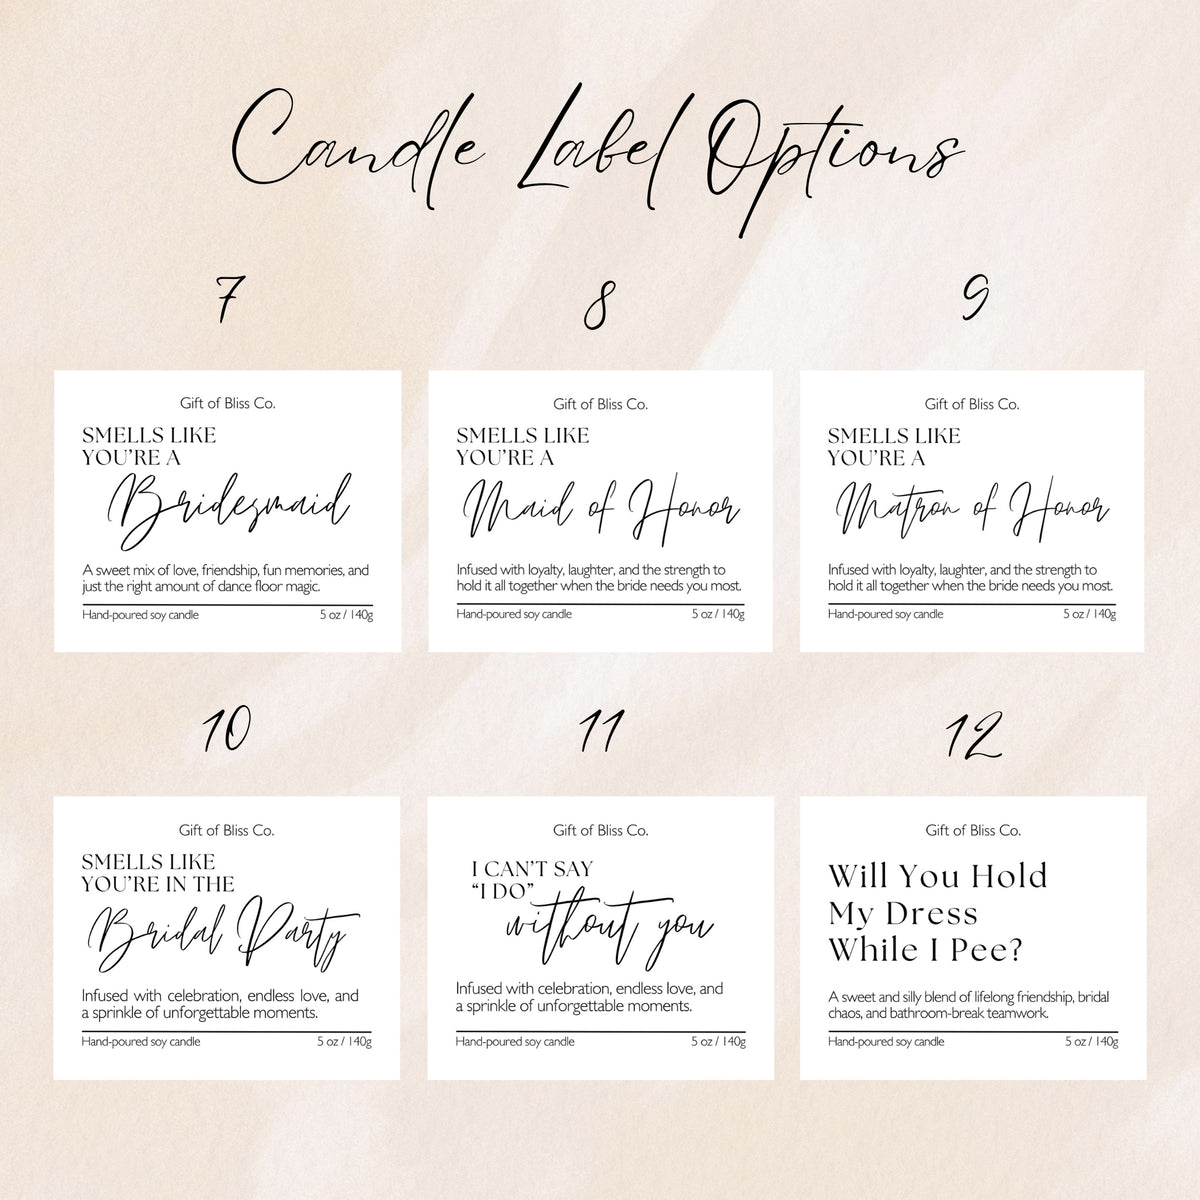 Candle Label Options
7
8
9
Gift of Bliss Co.
SMELLS LIKE
YOU'RE A
Bridesmaid
A sweet mix of love, friendship, fun memories, and
just the right amount of dance floor magic.
Hand-poured soy candle 5 oz / 140g
Gift of Bliss Co.
SMELLS LIKE
YOU'RE A
Maid of Honor
Infused with loyalty, laughter, and the strength to
hold it all together when the bride needs you most.
Hand-poured soy candle 5 oz / 140g
Gift of Bliss Co.
SMELLS LIKE
YOU'RE A
Matron of Honor
Infused with loyalty, laughter, and the strength to
hold it all together when the bride needs you most.
Hand-poured soy candle 5 oz / 140g
10
11
12
Gift of Bliss Co.
SMELLS LIKE
YOU'RE IN THE
Bridal Party
Infused with celebration, endless love, and
a sprinkle of unforgettable moments.
Hand-poured soy candle 5 oz / 140g
Gift of Bliss Co.
I CAN'T SAY
“I DO”
without you
Infused with celebration, endless love, and
a sprinkle of unforgettable moments.
Hand-poured soy candle 5 oz / 140g
Gift of Bliss Co.
Will You Hold
My Dress
While I Pee?
A sweet and silly blend of lifelong friendship, bridal
chaos, and bathroom-break teamwork.
Hand-poured soy candle 5 oz / 140g